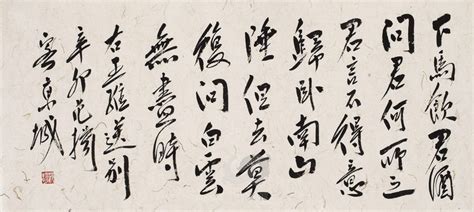 下馬飲君酒
問君何所之
君言不得意
歸臥南山
陲但去莫
復問白雲
無盡時
右王維送別
辛卯
客京城